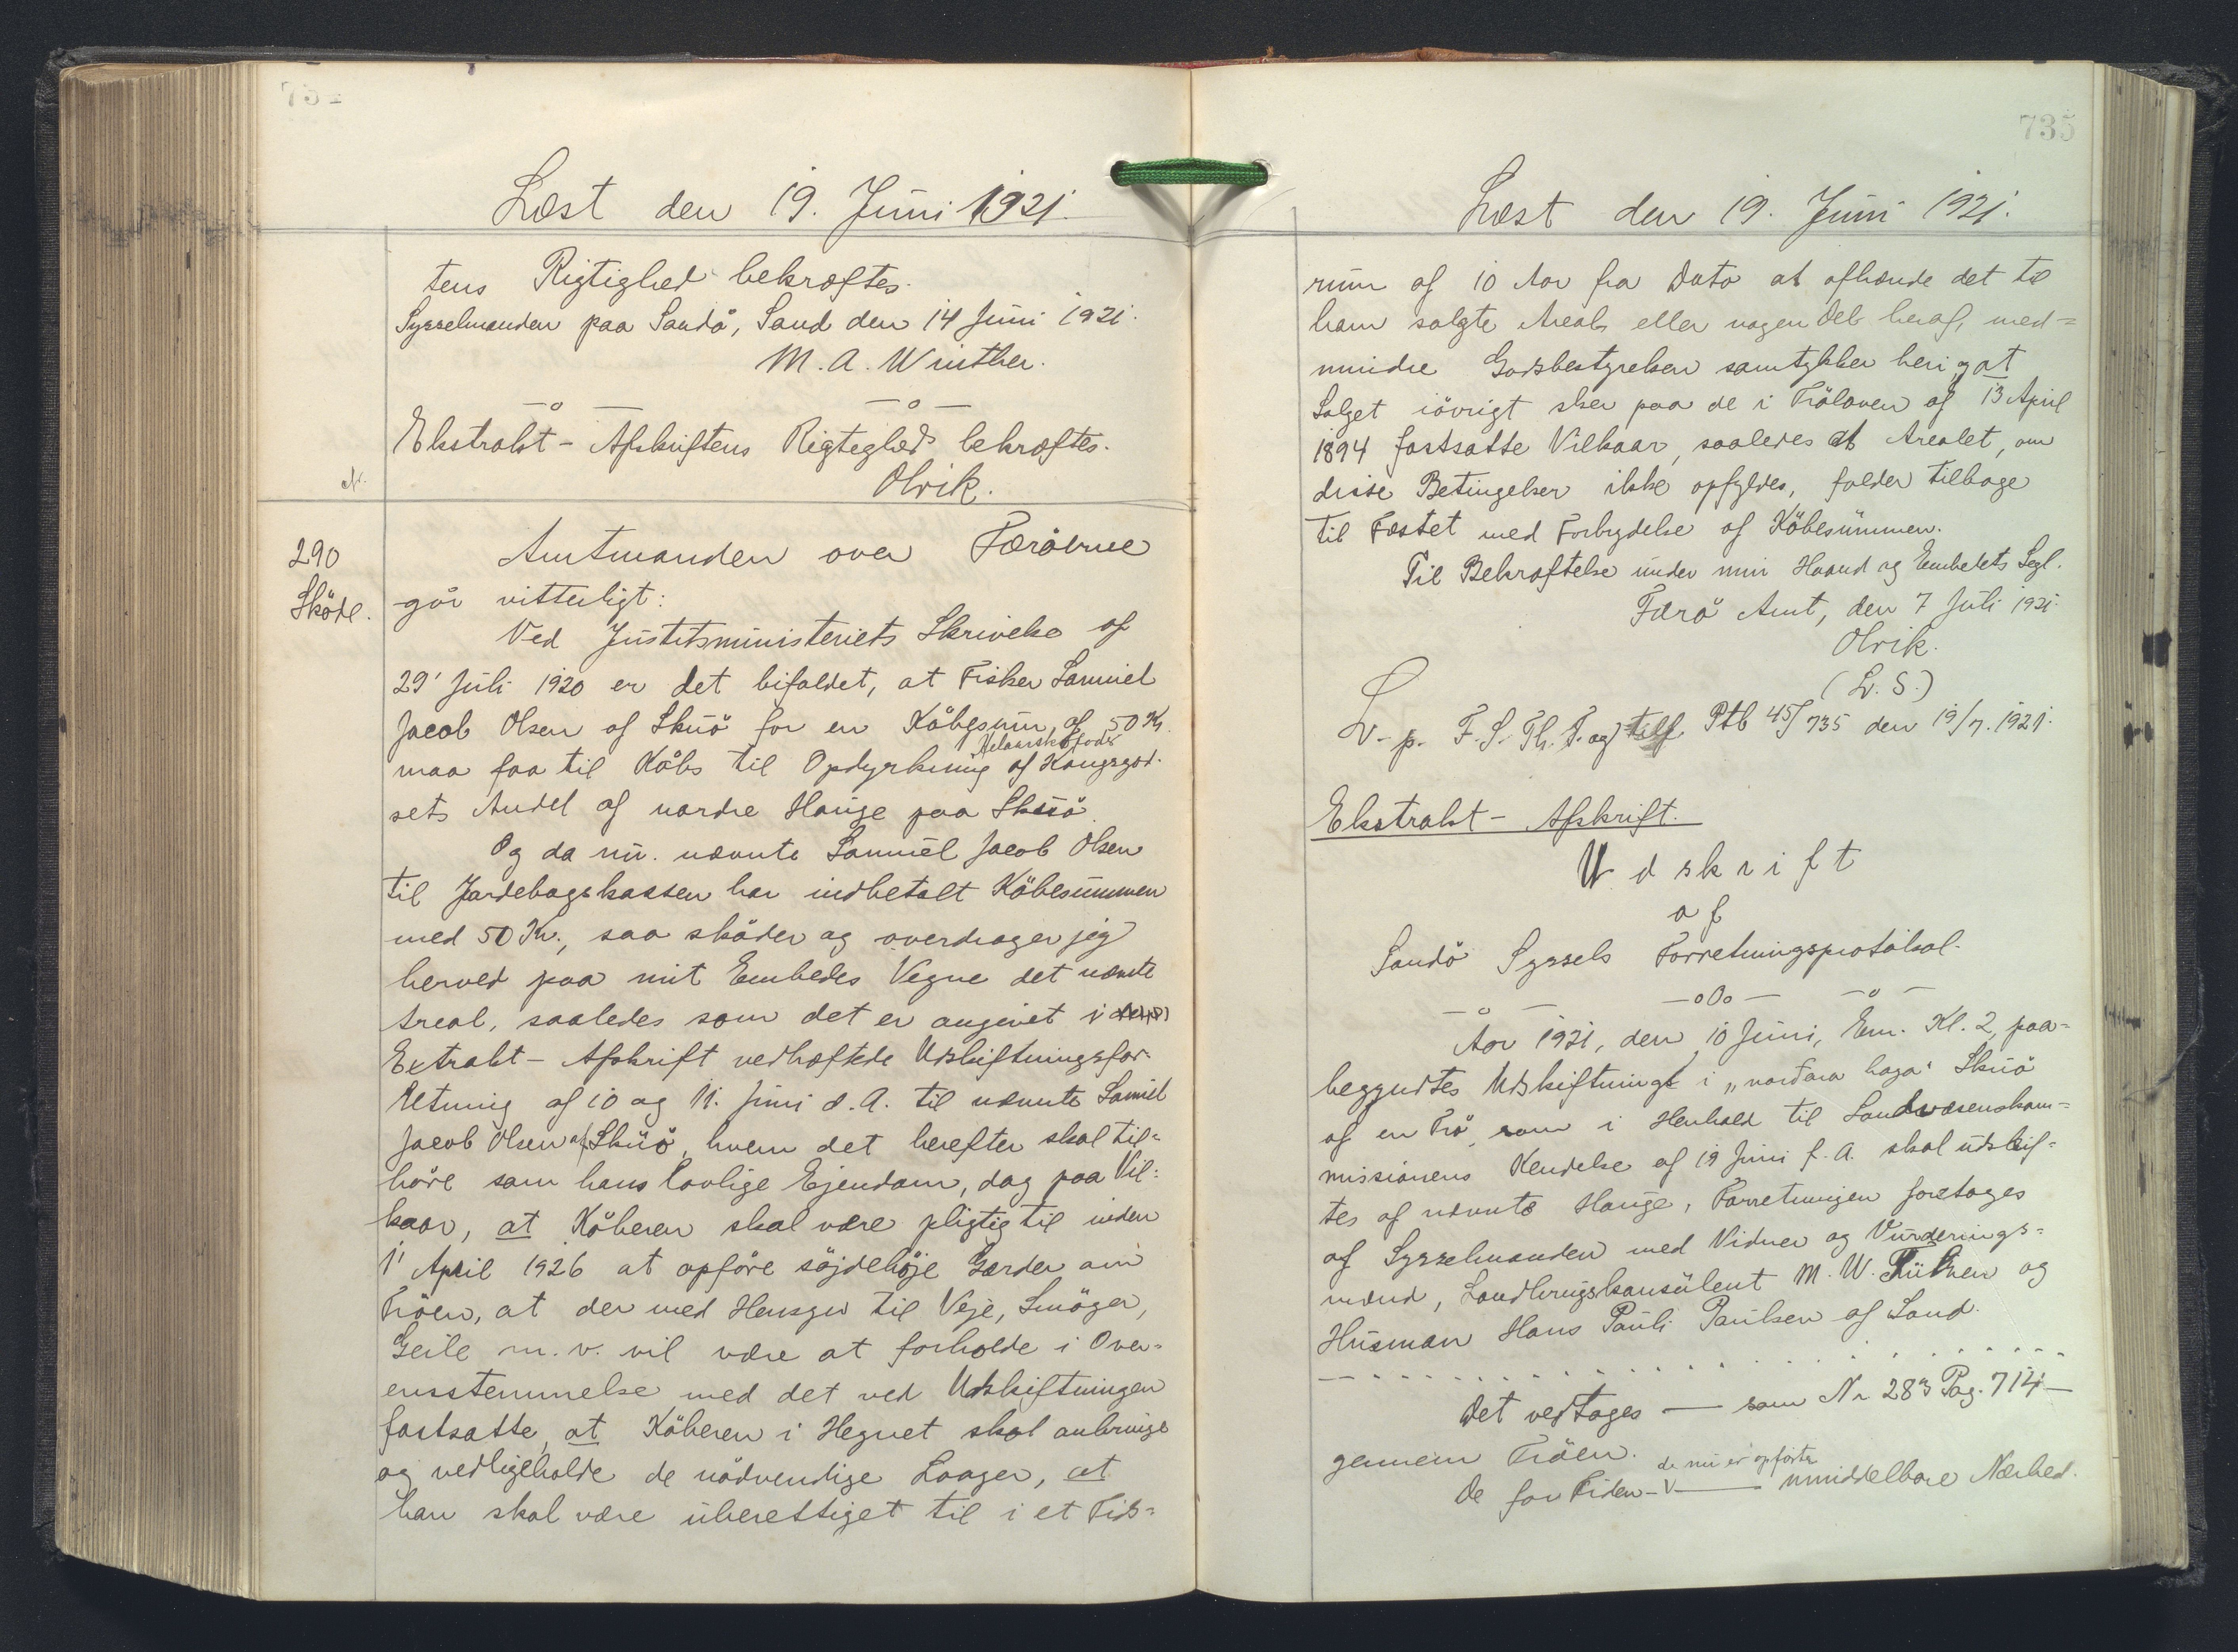 Læst den 19. Juni 1921.
tens Rigtighed bekræftes.
Sysselmanden paa Sandö, Sand den 14 Juni 1921.
M. A. Winther.
Ekstrakt-Afskriftens Rigtighed bekræftes.
Olrik.
290
Sköde.
Amtmanden over Færöerne
gör vitterligt:
Ved Justitsministeriets Skrivelse af
29' Juli 1920 er det bifaldet, at Fisker Samuel
Jacob Olsen af Skuö for en Köbesum af 50 Kr.
maa faa til Köbs til Opdyrkning af Kongsgod-
sets Andel af nordre Hauge paa Skuö.
Og da nu nævnte Samuel Jacob Olsen
til Jordebogskassen har indbetalt Köbesummen
med 50 Kr., saa sköder og overdrager jeg
herved paa mit Embedes Vegne det nævnte
Areal, saaledes som det er angivet i den i
Extrakt-Afskrift vedhæftede Udskiftningsfor-
retning af 10 og 11. Juni d. A. til nævnte Samuel
Jacob Olsen af Skuö, hvem det herefter skal til-
höre som hans lovlige Ejendom, dog paa Vil-
kaar, at Köberen skal være pligtig til inden
1' April 1926 at opföre söjdehöje Gærder om
Tröen, at der med Hensyn til Veje, Smöger,
Geile m. v. vil være at forholde i Over-
ensstemmelse med det ved Udskiftningen
fastsatte, at Köberen i Hegnet skal anbringe
og vedligeholde de nödvendige Laager, at
han skal være uberettiget til i et Tids-
735
Læst den 19. Juni 1921.
rum af 10 Aar fra Dato at afhænde det til
ham solgte Areal eller nogen Del heraf, med-
mindre Godsbestyrelsen samtykker heri, at
Salget iövrigt sker paa de i Tröloven af 13 April
1894 fastsatte Vilkaar, saaledes at Arealet, om
disse Betingelser ikke opfyldes, falder tilbage
til Fæstet med Forbrydelse af Köbesummen.
Til Bekræftelse under min Haand og Embedets Segl.
Færö Amt, den 7 Juli 1921.
Olrik.
(L. S.)
L. p. F. S. Th. T. og Ptb 45/735 den 19/7. 1921.
Ekstrakt-Afskrift.
Udskrift
af
Sandö Syssels Forretningsprotokol.
-oOo-
Aar 1921, den 10 Juni, Em. Kl. 2, paa-
begyndtes Udskiftning i "nordara haga" Skuö
af en Trö, som i Henhold til Landvæsenskom-
missionens Kendelse af 19 Juni f. A. skal udskif-
tes af nævnte Hauge, Forretningen foretages
af Sysselmanden med Vidner og Vurderings-
mænd, Landbrugskonsulent M. W. og
Husman Hans Pauli Paulsen af Sand.
Det vedtages — som Nr 283 Pag. 714 —
gennem Tröen.
de nu er opförte
De for Tiden -V— umiddelbare Nærhed.